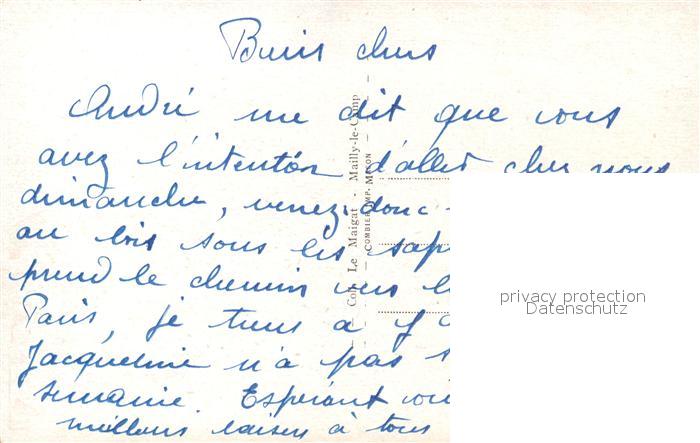 Biens chers
André me dit que vous
avez l'intention d'aller chez nous
dimanche, venez donc
au bois sous les sap
prend le chemin vers l
Paris, je tiens à
Jacqueline n'a pas
semaine. Espérant
meilleurs baisers à tous
Coll. Le Maigat - Mailly-le-Camp
COMBIER IMP. MACON
privacy protection
Datenschutz